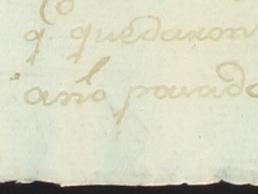 q. quedaron
año pasado